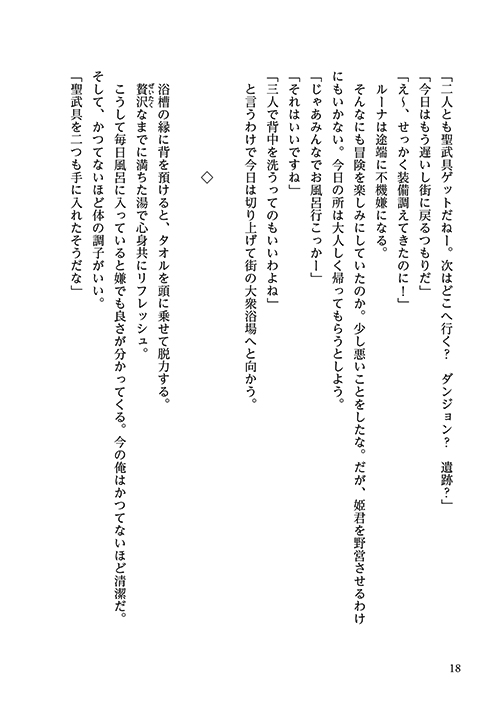 「二人とも聖武具ゲットだねー。次はどこへ行く？　ダンジョン？　遺跡？」
「今日はもう遅いし街に戻るつもりだ」
「え～、せっかく装備調えてきたのに！」
ルーナは途端に不機嫌になる。
そんなにも冒険を楽しみにしていたのか。少し悪いことをしたな。だが、姫君を野営させるわけ
にもいかない。今日の所は大人しく帰ってもらうとしよう。
「じゃあみんなでお風呂行こっかー」
「それはいいですね」
「三人で背中を洗うってのもいいわよね」
と言うわけで今日は切り上げて街の大衆浴場へと向かう。
◇
浴槽の縁に背を預けると、タオルを頭に乗せて脱力する。
贅沢なまでに満ちた湯で心身共にリフレッシュ。
ぜいたく
こうして毎日風呂に入っていると嫌でも良さが分かってくる。今の俺はかつてないほど清潔だ。
そして、かつてないほど体の調子がいい。
「聖武具を二つも手に入れたそうだな」
18